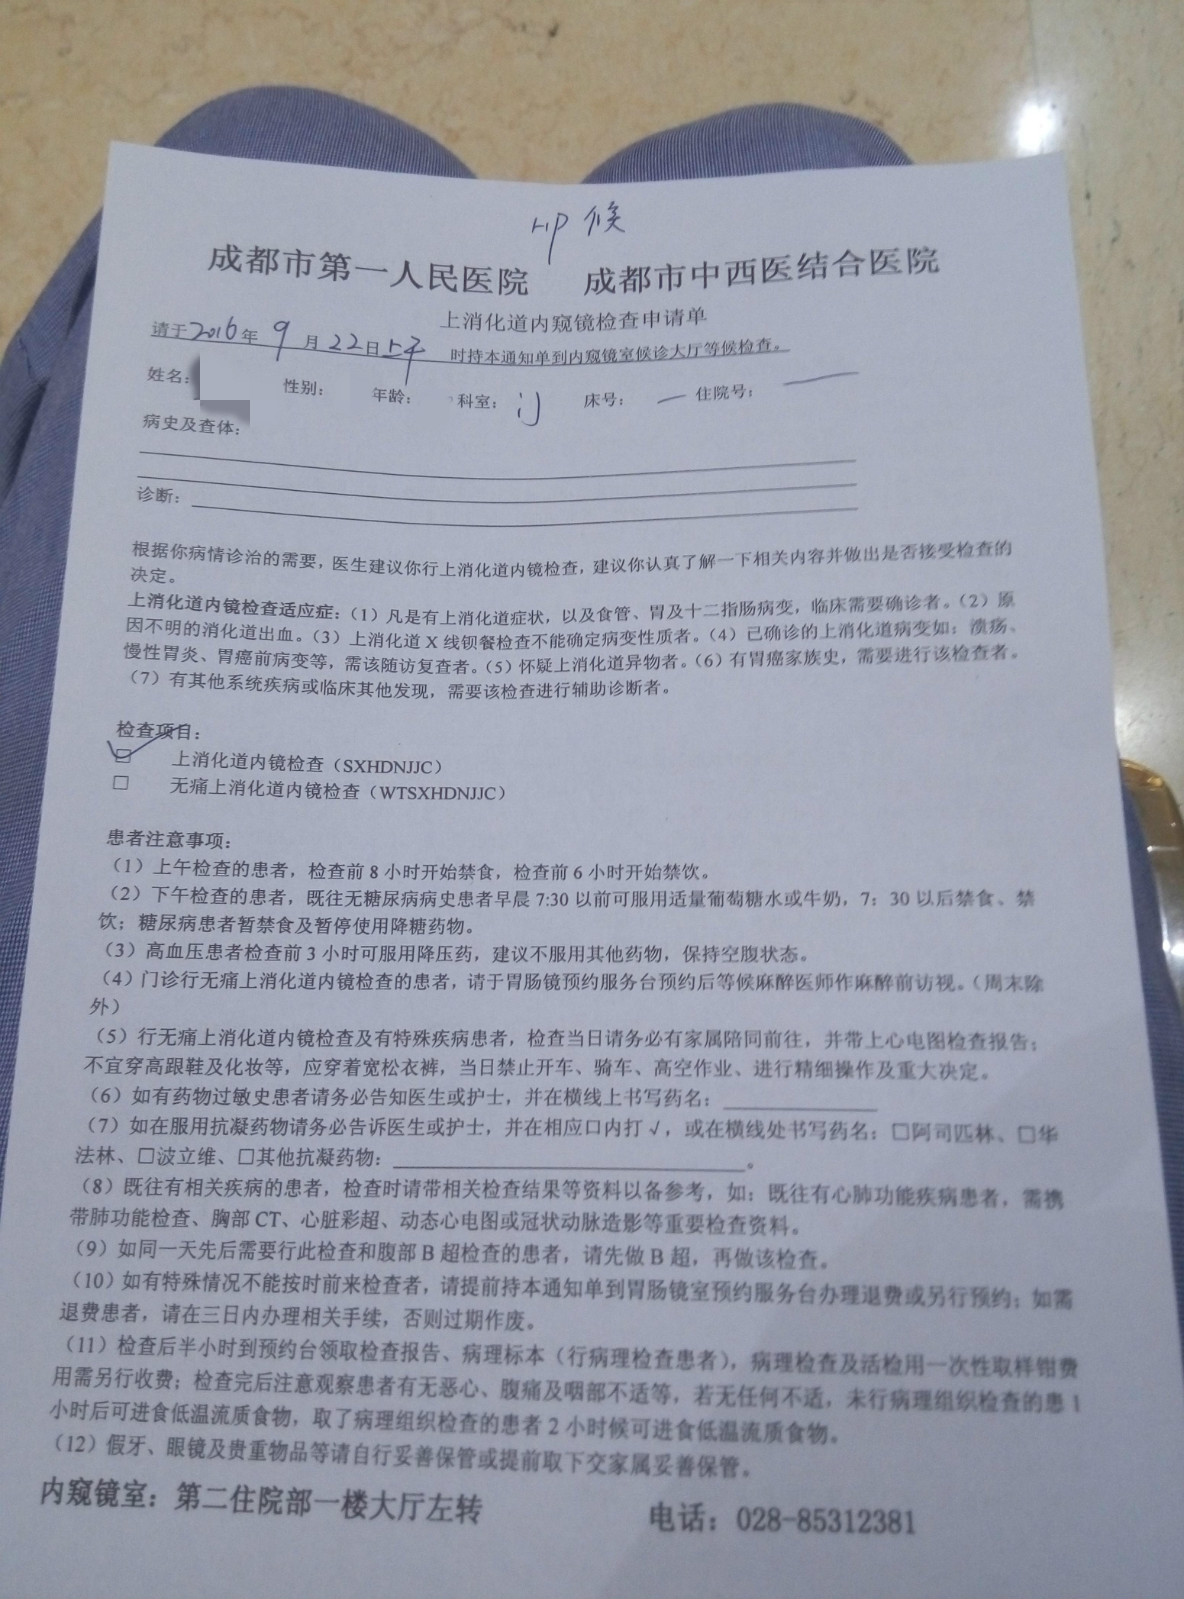 HP 候
成都市第一人民医院 成都市中西医结合医院
上消化道内窥镜检查申请单
请于2016年9月22日上午 时持本通知单到内窥镜室候诊大厅等候检查。
姓名: 性别: 年龄: 科室: 门 床号: — 住院号: —
病史及查体:
诊断:
根据你病情诊治的需要，医生建议你行上消化道内镜检查，建议你认真了解一下相关内容并做出是否接受检查的
决定。
上消化道内镜检查适应症:（1）凡是有上消化道症状，以及食管、胃及十二指肠病变，临床需要确诊者。（2）原
因不明的消化道出血。（3）上消化道 X 线钡餐检查不能确定病变性质者。（4）已确诊的上消化道病变如: 溃疡、
慢性胃炎、胃癌前病变等，需该随访复查者。（5）怀疑上消化道异物者。（6）有胃癌家族史，需要进行该检查者。
（7）有其他系统疾病或临床其他发现，需要该检查进行辅助诊断者。
检查项目:
☑ 上消化道内镜检查（SXHDNJJC）
□ 无痛上消化道内镜检查（WTSXHDNJJC）
患者注意事项:
（1）上午检查的患者，检查前 8 小时开始禁食，检查前 6 小时开始禁饮。
（2）下午检查的患者，既往无糖尿病病史患者早晨 7:30 以前可服用适量葡萄糖水或牛奶，7: 30 以后禁食、禁
饮; 糖尿病患者暂禁食及暂停使用降糖药物。
（3）高血压患者检查前 3 小时可服用降压药，建议不服用其他药物，保持空腹状态。
（4）门诊行无痛上消化道内镜检查的患者，请于胃肠镜预约服务台预约后等候麻醉医师作麻醉前访视。（周末除
外）
（5）行无痛上消化道内镜检查及有特殊疾病患者，检查当日请务必有家属陪同前往，并带上心电图检查报告;
不宜穿高跟鞋及化妆等，应穿着宽松衣裤，当日禁止开车、骑车、高空作业、进行精细操作及重大决定。
（6）如有药物过敏史患者请务必告知医生或护士，并在横线上书写药名:
（7）如在服用抗凝药物请务必告诉医生或护士，并在相应口内打 √，或在横线处书写药名: □阿司匹林、□华
法林、□波立维、□其他抗凝药物: 。
（8）既往有相关疾病的患者，检查时请带相关检查结果等资料以备参考，如: 既往有心肺功能疾病患者，需携
带肺功能检查、胸部 CT、心脏彩超、动态心电图或冠状动脉造影等重要检查资料。
（9）如同一天先后需要行此检查和腹部 B 超检查的患者，请先做 B 超，再做该检查。
（10）如有特殊情况不能按时前来检查者，请提前持本通知单到胃肠镜室预约服务台办理退费或另行预约; 如需
退费患者，请在三日内办理相关手续，否则过期作废。
（11）检查后半小时到预约台领取检查报告、病理标本（行病理检查患者），病理检查及活检用一次性取样钳费
用需另行收费; 检查完后注意观察患者有无恶心、腹痛及咽部不适等，若无任何不适，未行病理组织检查的患 1
小时后可进食低温流质食物，取了病理组织检查的患者 2 小时候可进食低温流质食物。
（12）假牙、眼镜及贵重物品等请自行妥善保管或提前取下交家属妥善保管。
内窥镜室: 第二住院部一楼大厅左转 电话: 028-85312381